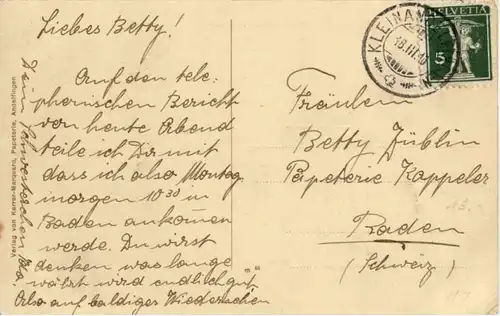 Liebes Betty!
Auf den tele-
phonischen Bericht
von heute Abend
teile ich Dir mit
dass ich also Montag
morgen 10 30 in
Baden ankommen
werde. Du wirst
denken was lange
währt wird endlich gut.
Also auf baldiges Wiedersehen
Dein Schwesterchen
Verlag von Kanner-Baumann, Papeterie,
HELVETIA
5
KLEINAN
Fräulein
Betty Züblin
Papeterie Kappeler
Baden
(Schweiz)